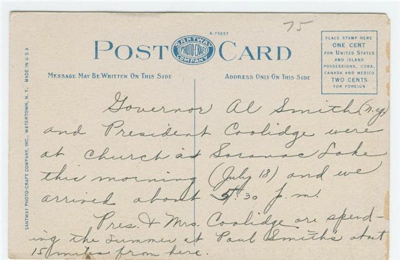 75
A-115877
POST CARD
SANTWAY PHOTO-CRAFT COMPANY
MESSAGE MAY BE WRITTEN ON THIS SIDE
ADDRESS ONLY ON THIS SIDE
PLACE STAMP HERE
ONE CENT
FOR UNITED STATES
AND ISLAND
POSSESSIONS, CUBA,
CANADA AND MEXICO
TWO CENTS
FOR FOREIGN
SANTWAY PHOTO-CRAFT COMPANY, INC., WATERTOWN, N. Y. MADE IN U S A
Governor Al Smith (N.Y.)
and President Coolidge were
at church at Saranac Lake
this morning (July 18) and we
arrived about 5:30 p.m.
Pres. & Mrs. Coolidge are spend-
ing the summer at Paul Smiths abt
15 miles from here.